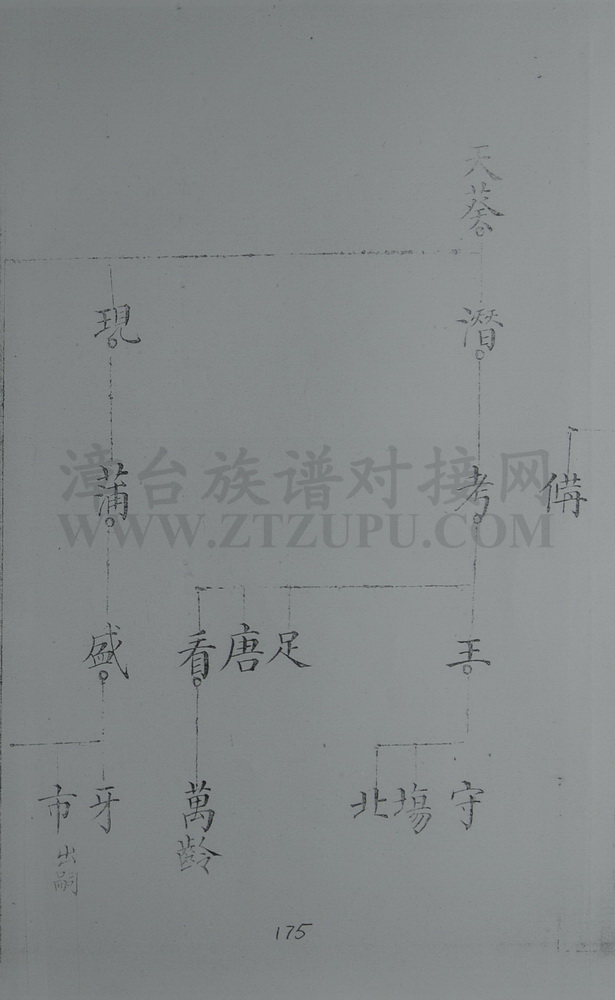 天葵
潛
現
備
考
蒲
漳台族谱对接网
WWW.ZTZUPU.COM
王
足
唐
看
盛
守
塲
北
萬齡
牙
市
出嗣
175